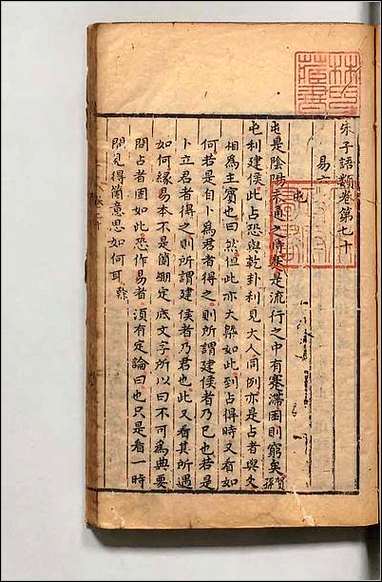 朱子語類卷第七十
易六
屯
屯是陰陽未通之時蹇是流行之中有蹇滯困則窮矣賀孫
屯利建侯此占恐與乾卦利見大人同例亦是占者與爻
相為主賓也曰然但此亦大槩如此到占得時又看如
何若是自卜為君者得之則所謂建侯者乃己也若是
卜立君者得之則所謂建侯者乃君也此又看其所遇
如何緣易本不是箇綳定底文字所以曰不可為典要
問占者固如此恐作易者須有定論曰也只是看一時
間見得箇意思如何耳